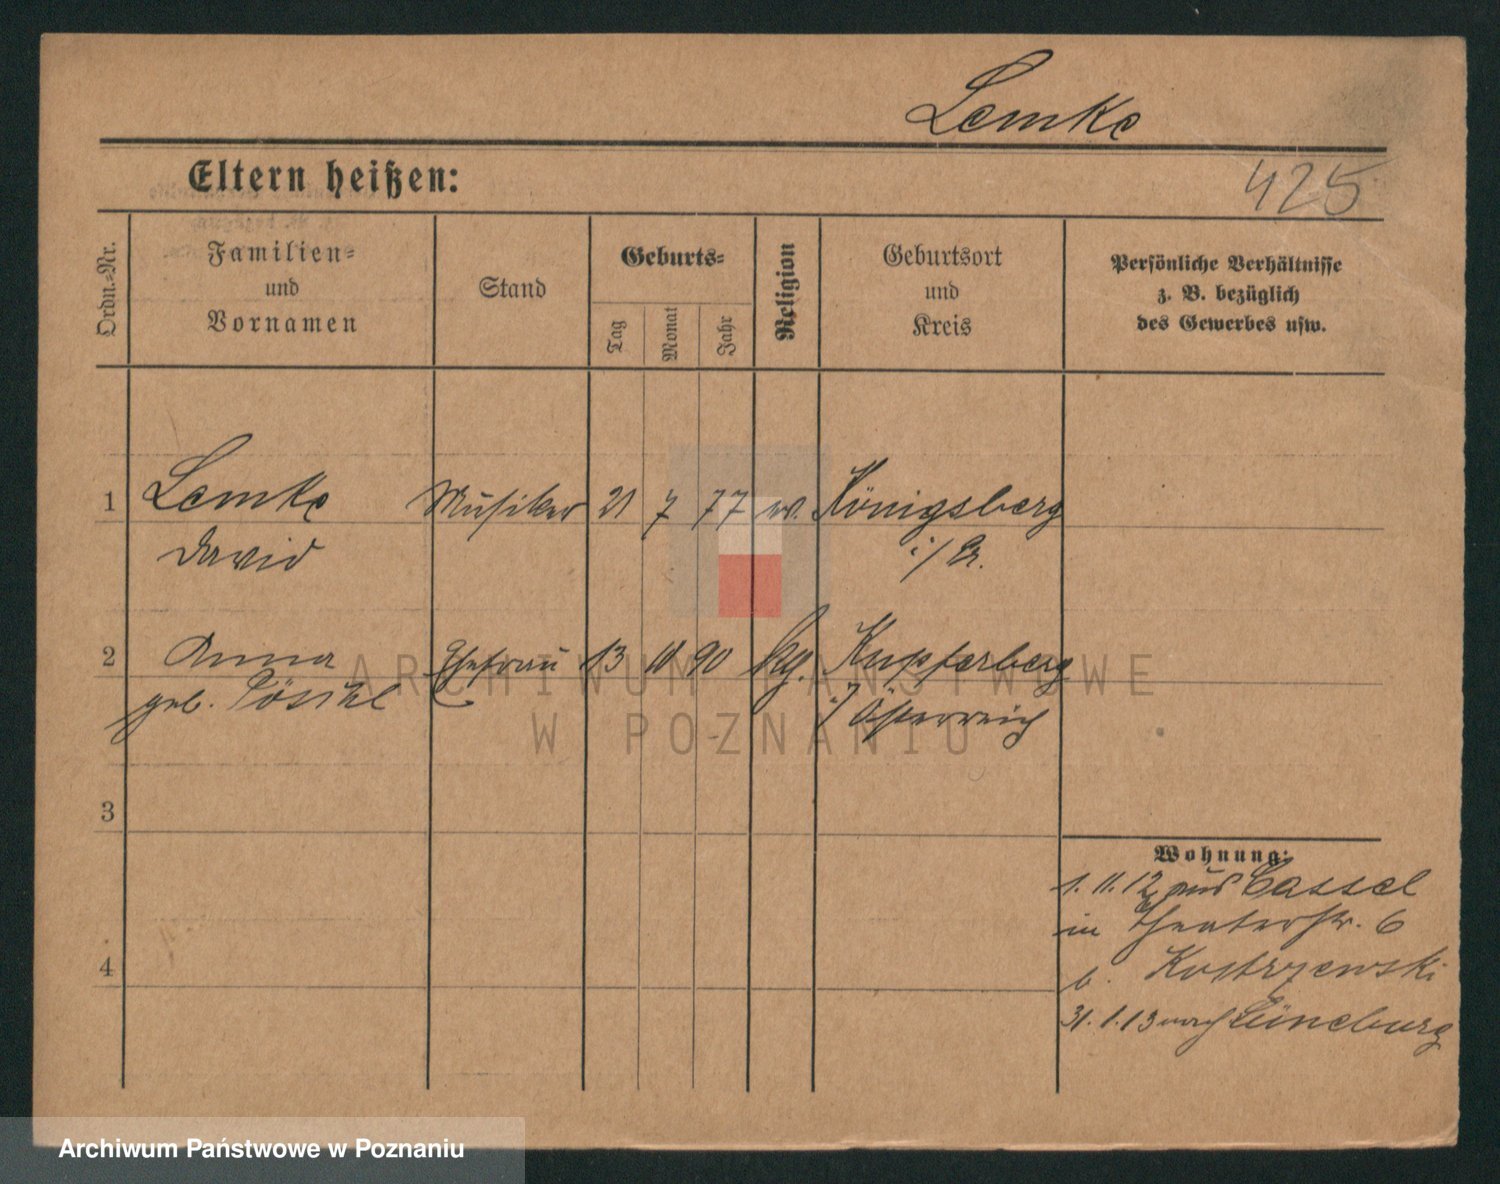 Lemke
425
Eltern heißen:
Ordn.-Nr.
Familien-
und
Vornamen
Stand
Geburts-
Tag
Monat
Jahr
Religion
Geburtsort
und
Kreis
Persönliche Verhältnisse
z. B. bezüglich
des Gewerbes usw.
1 Lemke Musiker 21 7 77 ev. Königsberg
David i/Pr.
2 Anna Ehefrau 13 11 90 kg. Kupferberg
geb. i/ Österreich
3
4
Wohnung:
1. 11. 12 aus Cassel
in Theaterstr. 6
b. Kostrzewski
31. 1. 13 nach Lüneburg
ARCHIWUM PAŃSTWOWE
W POZNANIU
Archiwum Państwowe w Poznaniu